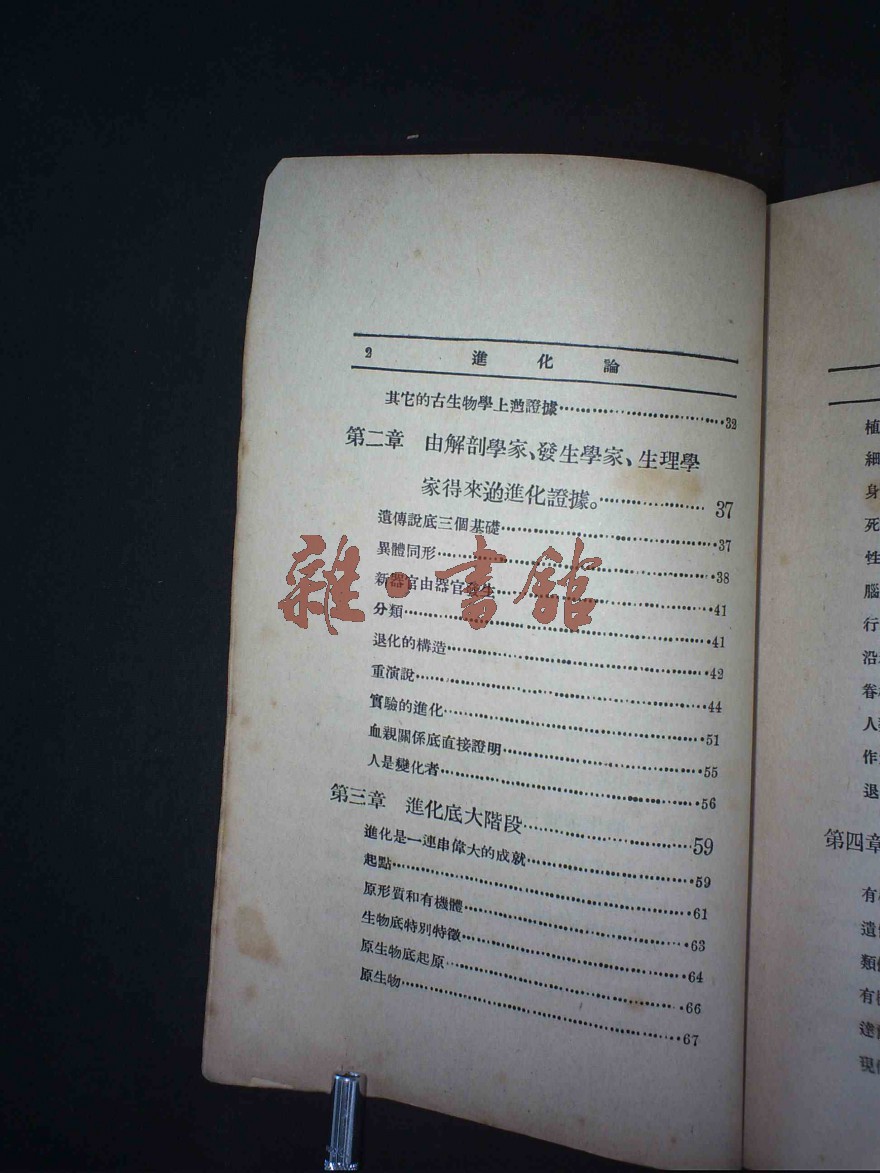 2 進化論
其它的古生物學上逎證據 32
第二章 由解剖學家、發生學家、生理學
家得來逎進化證據。 37
遺傳說底三個基礎 37
異體同形 38
新器官由器官發生 41
分類 41
退化的構造 42
重演說 44
實驗的進化 51
血親關係底直接證明 55
人是變化者 56
第三章 進化底大階段 59
進化是一連串偉大的成就 59
起點 61
原形質和有機體 63
生物底特別特徵 64
原生物底起原 66
原生物 67
雜·書館
植
細
身
死
性
腦
行
沿
眷
人
作
退
第四章
有
遺
類
有
達
現